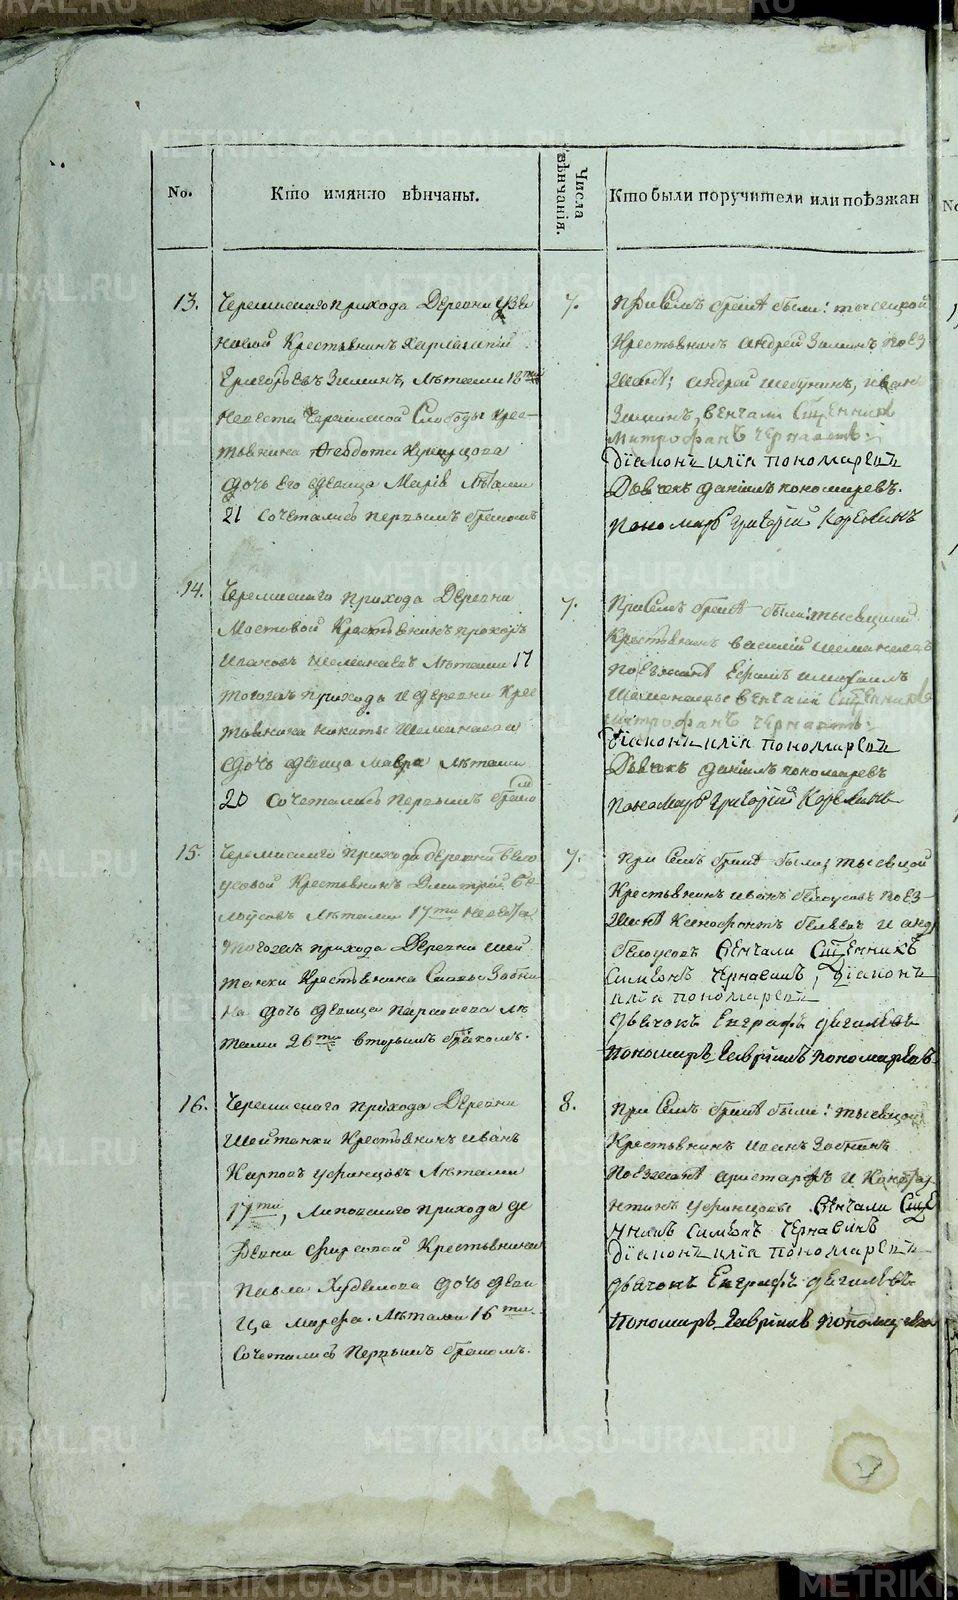 No.
Кто имянно вѣнчаны.
Числа вѣнчанія.
Кто были поручители или поѣзжан
13.
Черемисского прихода Деревни
новой Крестьянинъ
Григорьевъ Зиминъ, лѣтами 18ти
невеста Черемиской Слободы Крес-
тьянина Ѳеодота
дочь его девица Марія лѣтами
21 сочетались первымъ бракомъ
7.
При семъ браке были: тысецкой
Крестьянинъ андрей Зиминъ поез
жанѣ; андрей иванъ
Зиминъ, венчали Сщенникъ
Митрофанъ Чернавинъ
Діаконъ илія пономаревъ
Дьячекъ даніилъ пономаревъ.
Пономарь григорій Коровинъ
14.
Черемисского прихода Деревни
Мостовой Крестьянинъ прохоръ
Ивановъ Шеманаевъ лѣтами 17
тогожъ прихода и деревни Крес
тьянина никиты Шеманаева
дочь девица мавра лѣтами
20 Сочетались первымъ бракомъ
7.
При семъ браке были: тысецкий
Крестьянинъ василій Шеманаевъ
поезжанѣ Ефимъ михаилъ
Шеманаевы венчали Сщенникъ
митрофанъ Чернавинъ
діаконъ илія пономаревъ
Дьячекъ даніилъ пономаревъ
Пономарь григорій Коровинъ
15.
Черемисского прихода деревни Бело
усовой Крестьянинъ Дмитрій Бе-
лоусовъ лѣтами 17ти невеста
тогожъ прихода Деревни шай
танки Крестьянина Савы Забни
на дочь девица Парасковья лѣ
тами 26ти вторымъ бракомъ.
7.
при семъ браке были; тысецкой
Крестьянинъ иванъ белоусовъ поез-
жанѣ Ксенофонтъ беляевъ и анд
белоусовъ Венчали Сщенникъ
Симеонъ Чернавинъ, Діаконъ
илія пономаревъ
дьячокъ Евграфъ дягилевъ
пономарь гавріилъ пономаревъ
16.
Черемисского прихода Деревни
Шайтанки Крестьянинъ иванъ
Карповъ уфинцовъ лѣтами
17ти, Липовского прихода де
ревни фирсовой Крестьянина
Павла Худякова дочь деви
ца марфа. лѣтами 16ти.
Сочетались первымъ бракомъ.
8.
при семъ браке были: тысецкой
Крестьянинъ иванъ Забнинъ
поезжанѣ аристархъ и
уфинцовы Венчали Сще
нникъ Симеонъ Чернавинъ
Діаконъ илія пономаревъ
дьячокъ Евграфъ дягилевъ
Пономарь гавріилъ пономарев
METRIKI.GASO-URAL.RU